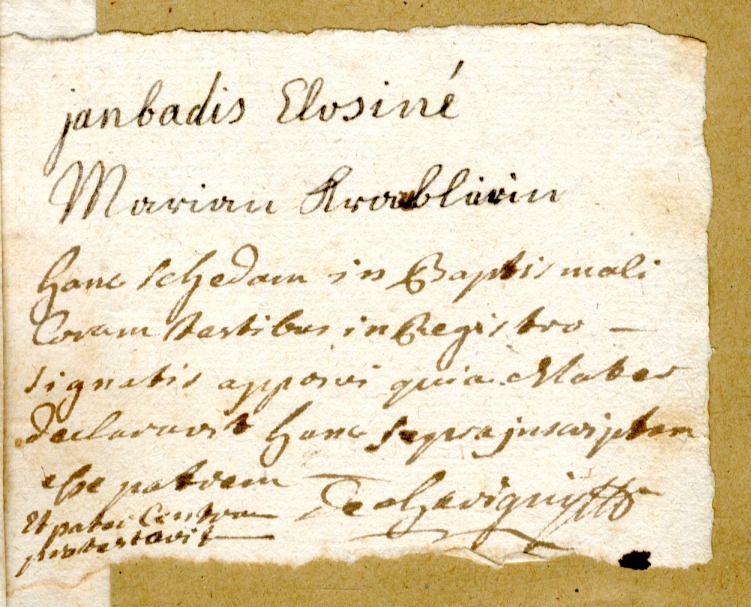 janbadis Elosiné
Marian Krablirin
hanc schedam in Baptismali
Coram testibus in Registro —
signatis apposui quia Mater
declaravit hanc suprajnscriptam
esse patrem
Dechevigny
Et pater Contra
protestavit